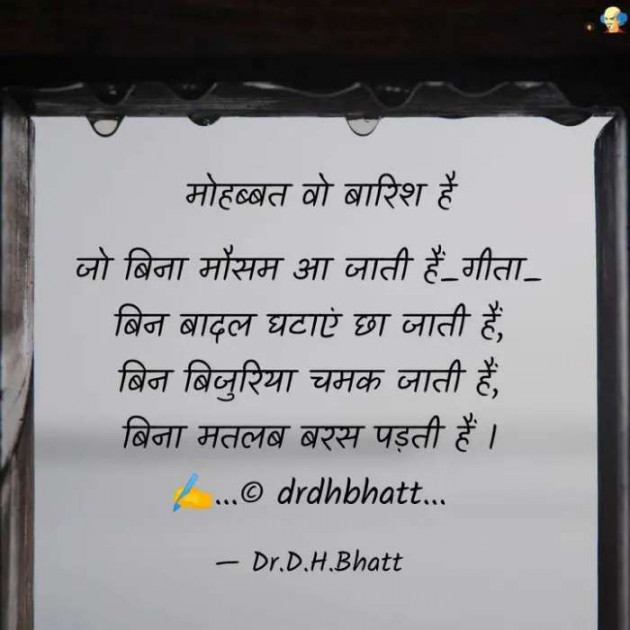 मोहब्बत वो बारिश है
जो बिना मौसम आ जाती हैं_गीता_
बिन बादल घटाएं छा जाती हैं,
बिन बिजुरिया चमक जाती हैं,
बिना मतलब बरस पड़ती हैं ।
✍️...© drdhbhatt...
— Dr.D.H.Bhatt